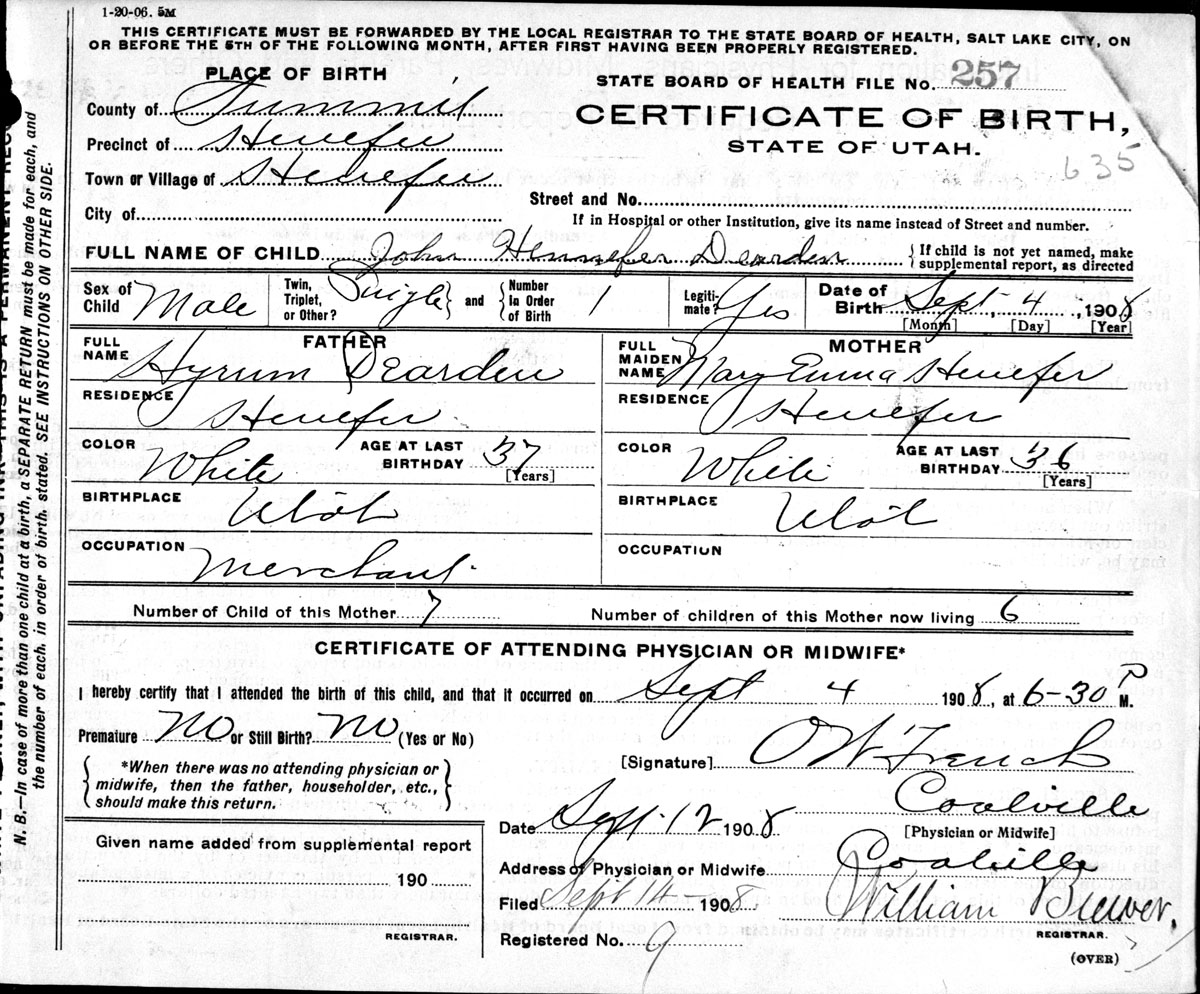 1-20-06. 5M
THIS CERTIFICATE MUST BE FORWARDED BY THE LOCAL REGISTRAR TO THE STATE BOARD OF HEALTH, SALT LAKE CITY, ON
OR BEFORE THE 5TH OF THE FOLLOWING MONTH, AFTER FIRST HAVING BEEN PROPERLY REGISTERED.
PLACE OF BIRTH
County of Summit
Precinct of Henefer
Town or Village of Henefer
City of
STATE BOARD OF HEALTH FILE No. 257
CERTIFICATE OF BIRTH,
STATE OF UTAH.
635
Street and No.
If in Hospital or other Institution, give its name instead of Street and number.
FULL NAME OF CHILD John Hennefer Dearden {If child is not yet named, make
supplemental report, as directed
Sex of Child Male Twin, Triplet, or Other? Single and Number In Order of Birth 1 Legitimate? Yes Date of Birth Sept. 4, 1908
[Month] [Day] [Year]
FATHER
FULL NAME Hyrum Dearden
RESIDENCE Henefer
COLOR White AGE AT LAST BIRTHDAY 37 [Years]
BIRTHPLACE Utah
OCCUPATION Merchant
MOTHER
FULL MAIDEN NAME Mary Emma Henefer
RESIDENCE Henefer
COLOR White AGE AT LAST BIRTHDAY 36 [Years]
BIRTHPLACE Utah
OCCUPATION
Number of Child of this Mother 7 Number of children of this Mother now living 6
CERTIFICATE OF ATTENDING PHYSICIAN OR MIDWIFE*
I hereby certify that I attended the birth of this child, and that it occurred on Sept 4 1908, at 6-30 P M.
Premature No or Still Birth? No (Yes or No)
*When there was no attending physician or
midwife, then the father, householder, etc.,
should make this return.
[Signature] O W French
Coalville
Date Sept. 12 1908 [Physician or Midwife]
Address of Physician or Midwife Coalville
Filed Sept 14 1908 William Brewer,
REGISTRAR.
Registered No. 9
(OVER)
Given name added from supplemental report
190
REGISTRAR.
N. B.—In case of more than one child at a birth, a SEPARATE RETURN must be made for each, and
the number of each, in order of birth, stated. SEE INSTRUCTIONS ON OTHER SIDE.